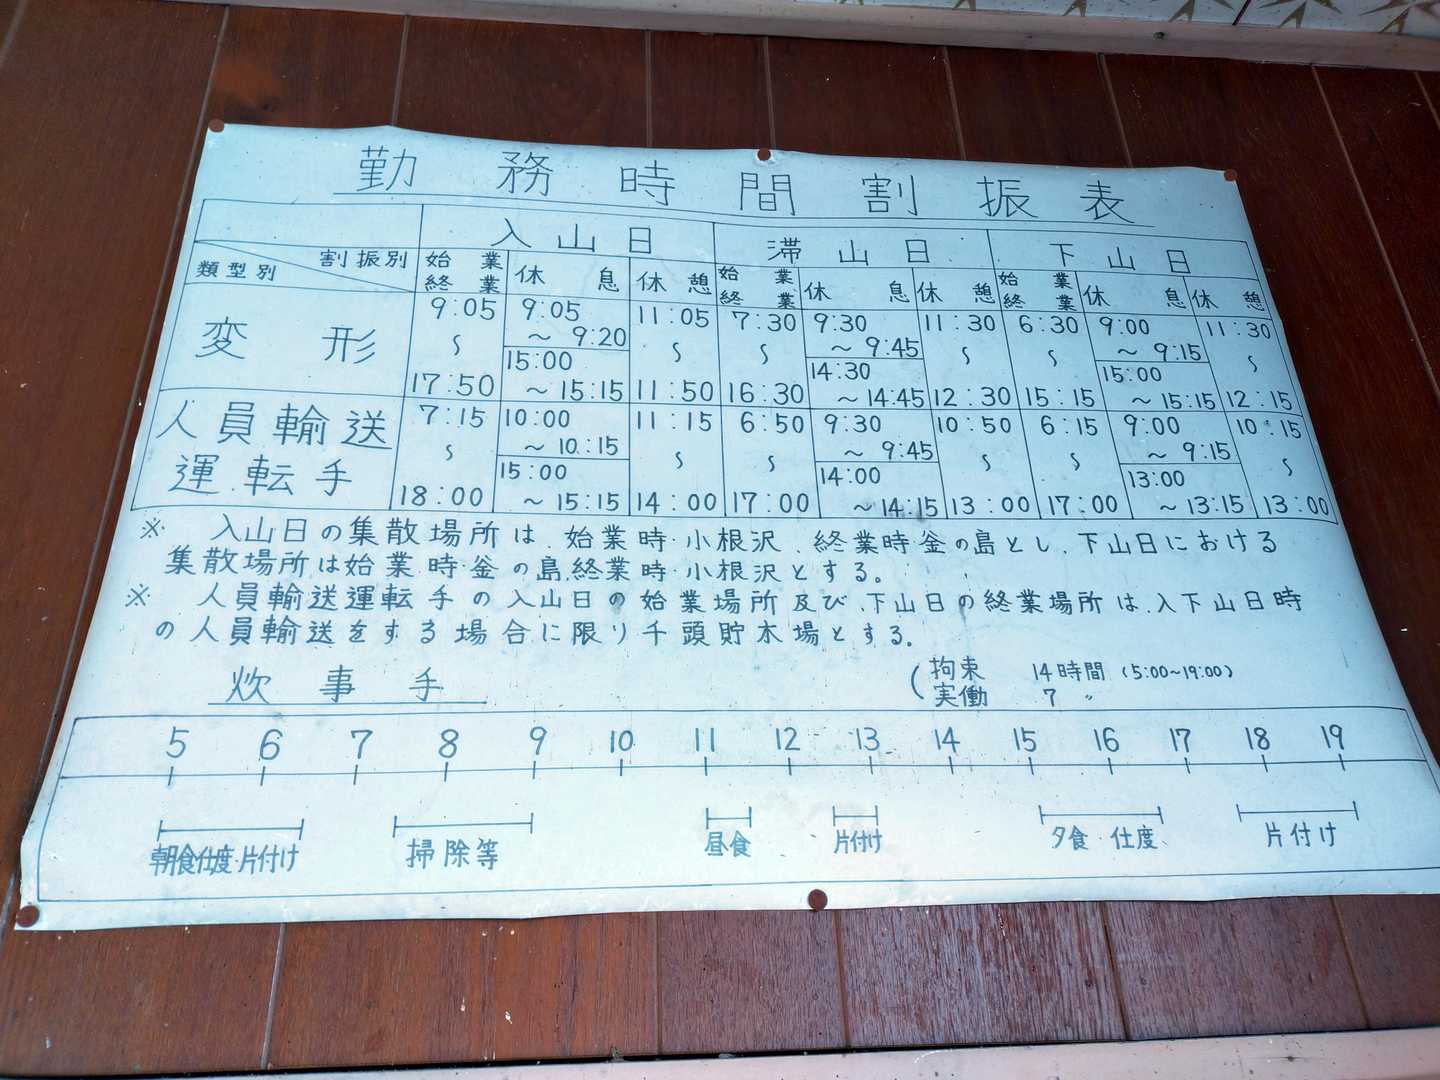 勤務時間割振表
入山日 滞山日 下山日
割振別 類型別 始業 終業 休息 休憩 始業 終業 休息 休憩 始業 終業 休息 休憩
変形 9:05 〜 17:50 9:05 〜 9:20 15:00 〜 15:15 11:05 〜 11:50 7:30 〜 16:30 9:30 〜 9:45 14:30 〜 14:45 11:30 〜 12:30 6:30 〜 15:15 9:00 〜 9:15 15:00 〜 15:15 11:30 〜 12:15
人員輸送運転手 7:15 〜 18:00 10:00 〜 10:15 15:00 〜 15:15 11:15 〜 14:00 6:50 〜 17:00 9:30 〜 9:45 14:00 〜 14:15 10:50 〜 13:00 6:15 〜 17:00 9:00 〜 9:15 13:00 〜 13:15 10:15 〜 13:00
※ 入山日の集散場所は、始業時・小根沢、終業時釜の島とし、下山日における
集散場所は始業時釜の島、終業時・小根沢とする。
※ 人員輸送運転手の入山日の始業場所及び、下山日の終業場所は、入下山日時
の人員輸送をする場合に限り千頭貯木場とする。
炊事手
(拘束 14時間 (5:00~19:00)
実働 7 〃
5 6 7 8 9 10 11 12 13 14 15 16 17 18 19
朝食仕度・片付け 掃除等 昼食 片付け 夕食・仕度 片付け